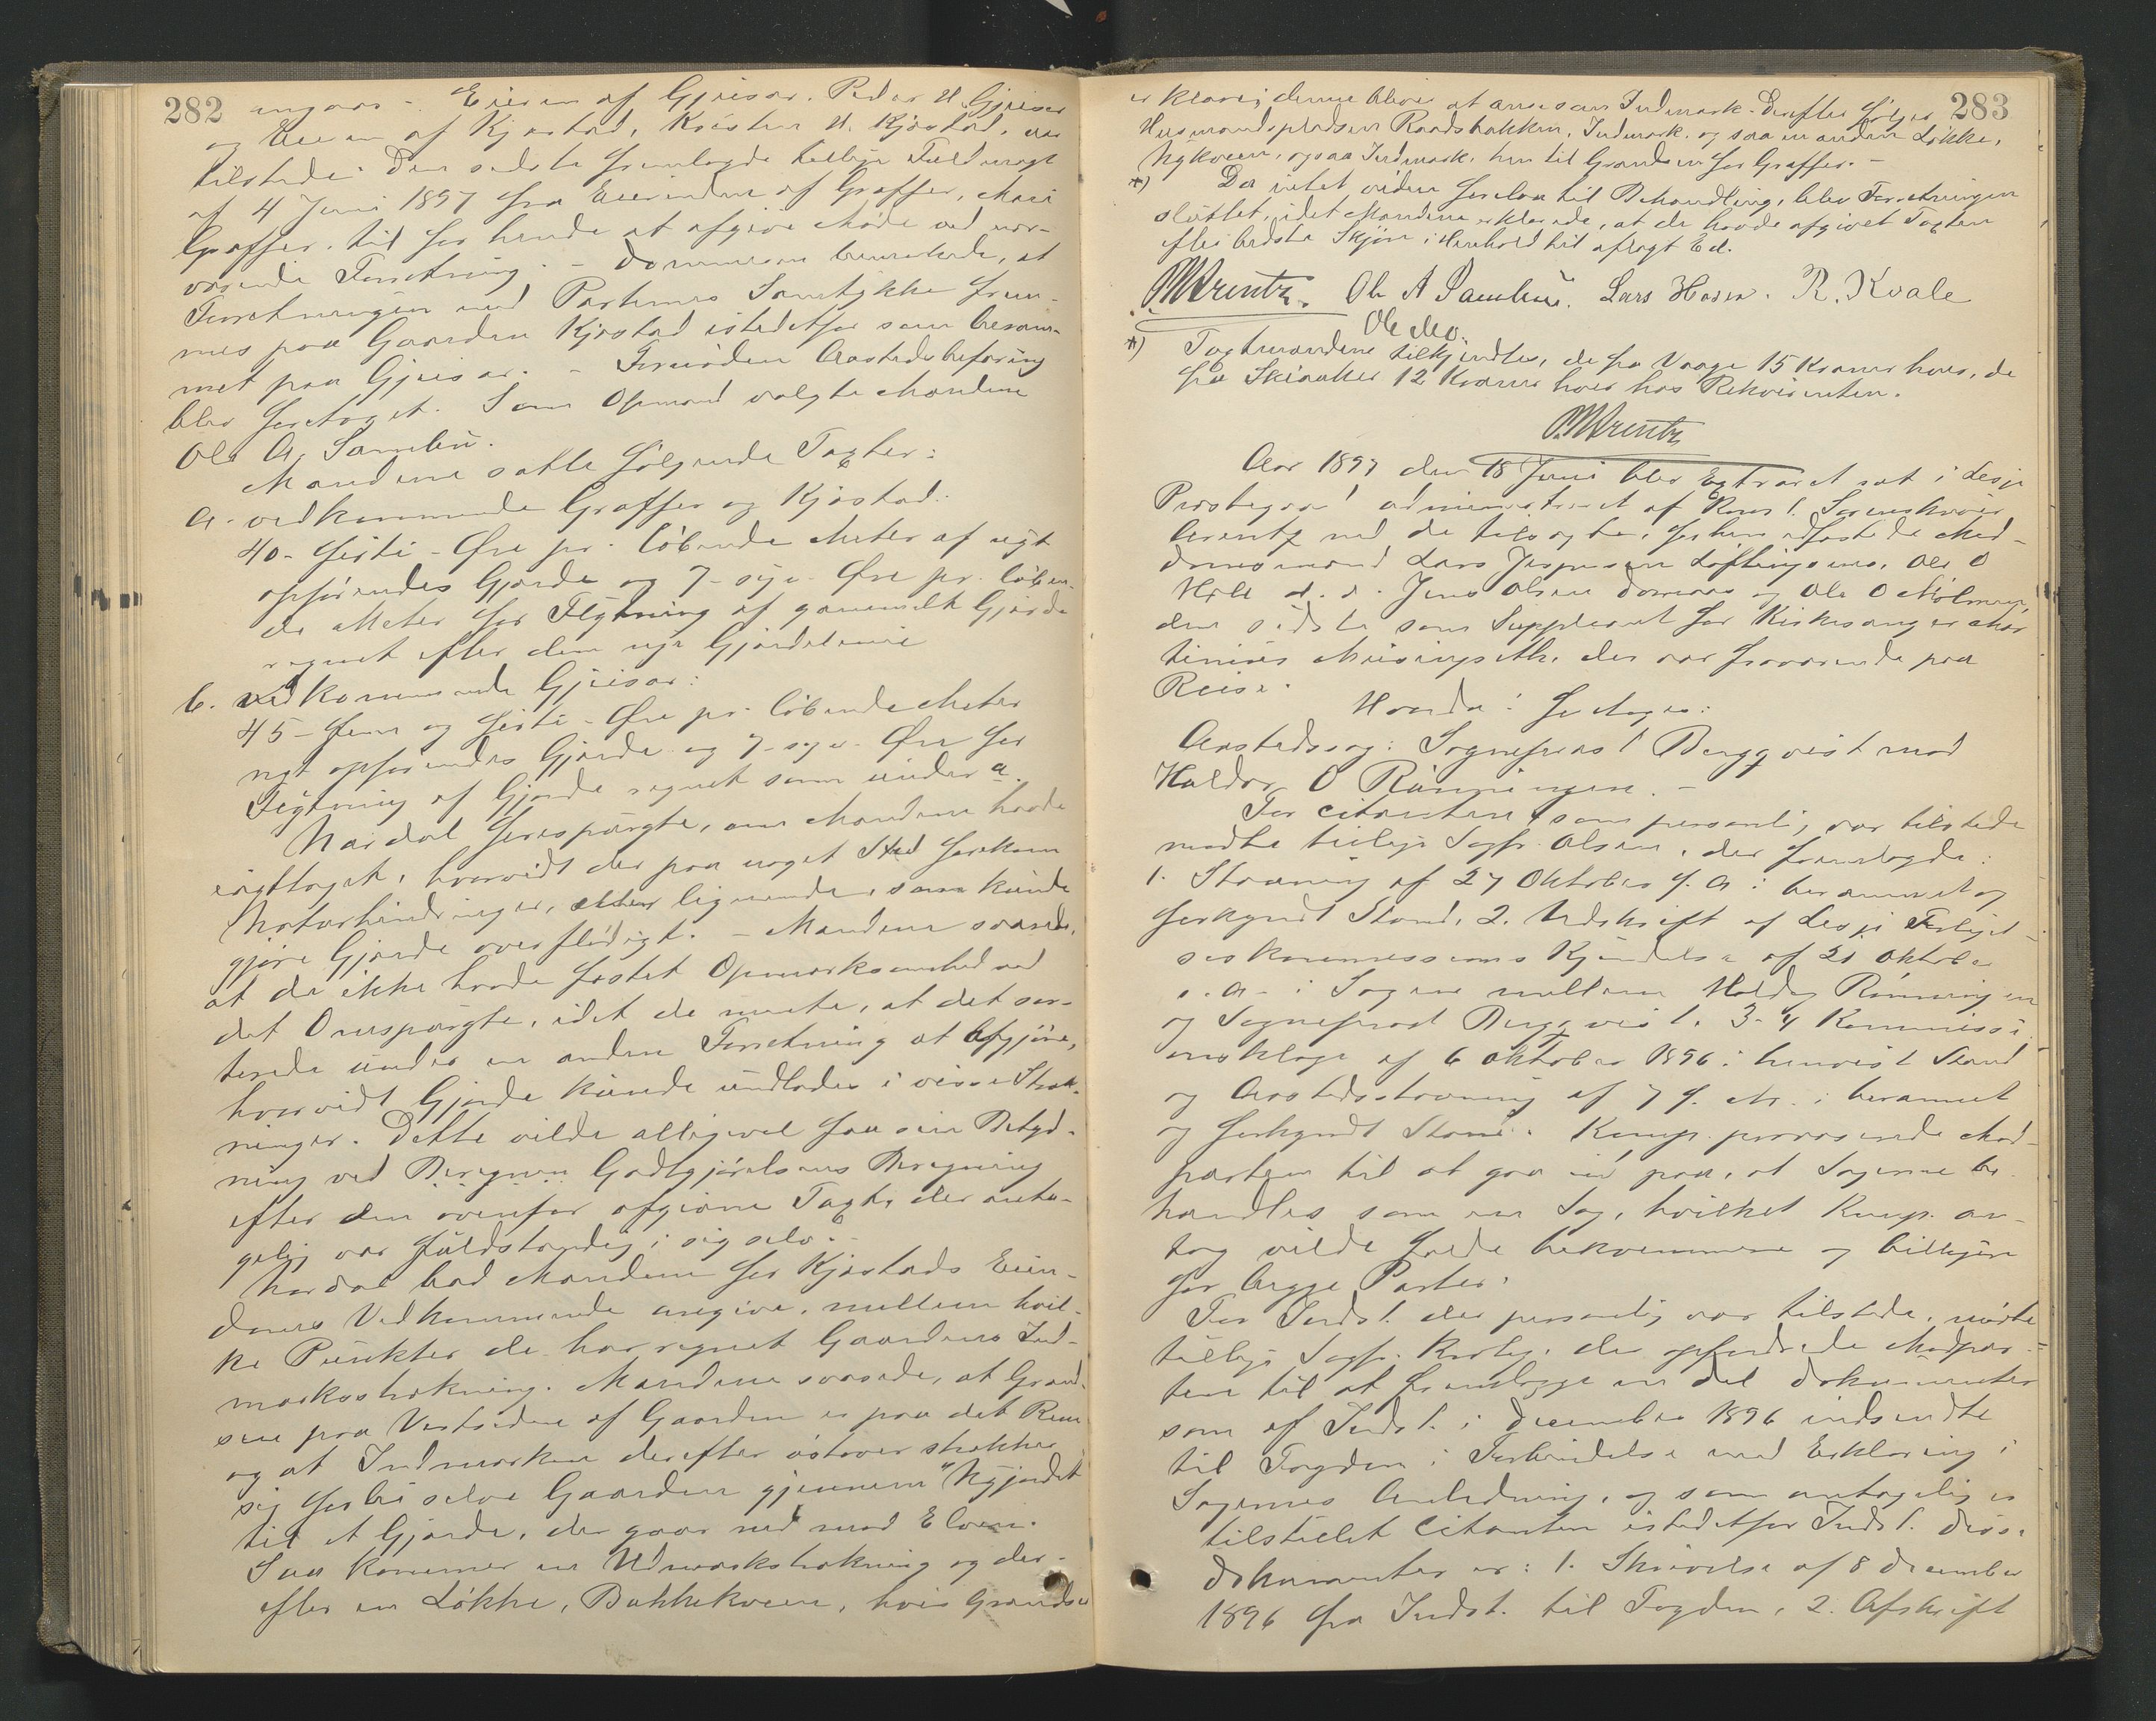 282
angaar - Eieren af Gjeisar. Peder H. Gjeisar
og Eieren af Kjøstad, Kristen H. Kjøstad, var
tilstede. Den sidste fremlagde tillige Fuldmagt
af 4 Juni 1897 fra Eierinden af Graffer, Mari
Graffer, til for hende at afgive Møde ved nær-
værende Forretning. - Dommeren bemærkede, at
Forretningen med Parternes Samtykke frem-
mes paa Gaarden Kjøstad istedetfor som beram-
met paa Gjeisar. - Fornøden Aastedsbefaring
blev foretaget. Som Opmand valgte Mændene
Ole A. Sambu.
Mændene satte følgende Taxter:
a. vedkommende Graffer og Kjøstad:
40 - firti - Øre pr. løbende Meter af nyt
opførendes Gjærde og 7 - syv - Øre pr. løben-
de Meter for Flytning af gammelt Gjærde
regnet efter den nye Gjærdelinie
b. vedkommende Gjeisar:
45 - fem og firti - Øre pr. løbende Meter
nyt opførendes Gjærde og 7 - syv - Øre for
Flytning af Gjærde regnet som under a.
Nardal forespurgte, om Mændene havde
iagttaget, hvorvidt der paa noget Sted forekom
Naturhindringer, eller lignende, som kunde
gjøre Gjærde overflødigt. - Mændene svarede,
at de ikke havde fæstet Opmærksomhed ved
det Omspurgte, idet de mente, at det sor-
terede under en anden Forretning at afgjøre,
hvorvidt Gjærde kunde undlades i visse Stræk-
ninger. Dette vilde alligevel faa sin Betyd-
ning ved Godtgjørelsens Beregning
efter den ovenfor afgivne Taxt, der antu-
gelig var fuldstændig i sig selv. -
Nardal bad Mændene for Kjøstads Eien-
doms Vedkommende angive, mellem hvil-
ke Punkter de har regnet Gaardens Ind-
marksstrækning. Mændene svarede, at Grænd-
sen paa Vestsiden af Gaarden er paa det Rene
og at Indmarken derefter østover strækker
sig forbi selve Gaarden gjennem "Nyjordet"
til et Gjærde, der gaar ned mod Elven.
Saa kommer en Udmarksstrækning og der-
efter en Løkke, Bakkekveen, hvis Grændser
283
er klare; denne bliver at anse som Indmark. Derefter følger
Husmandspladsen Raadsbakken, Indmark, og saa en anden Løkke,
Nykveen, ogsaa Indmark, hen til Grændsen for Graffer. -
*) Da intet videre forelaa til Behandling, blev Forretningen
sluttet, idet Mændene erklærede, at de havde afgivet Taxten
efter bedste Skjøn i Henhold til aflagt Ed.
MArentz. Ole A Sambu. Lars Hosen. R. Kvale
Ole Mo.
*) Taxtmændene tilkjendtes, de fra Vaage 15 Kroner hver, de
fra Skiaaker 12 Kroner hver hos Rekvirenten.
MArentz
Aar 1897 den 18 Juni blev Extraret sat i Lesje
Prestegaard administreret af Konst. Sorenskriver
Arentz med de tilsagte, forhen edfæstede Med-
domsmænd Lars Jespersen Loftingsmo, Ole O
Hole d. æ. Jens Olsen Dombaas og Ole O Mølmen,
den sidste som Suppleant for Kirkesanger Mar-
tinius Meisingseth, der var fraværende paa
Reise.
Hvorda: foretoges:
Aastedssag: Sogneprest Bergqvist mod
Haldor O Rønningen. -
For Citanten, som personlig var tilstede
mødte tillige Sagf. Olsen, der fremlagde:
1. Stævning af 27 Oktober f. A. i berammet og
forkyndt Stand, 2. Udskrift af Lesje Forligel-
seskommissions Kjendelse af 21 Oktober
s. A. i Sagen mellem Haldor Rønningen
og Sogneprest Bergqvist. 3-4 Kommissi-
onsklage af 6 Oktober 1896 i henvist Stand
og Aastedsstævning af 7 f. M. i berammet
og forkyndt Stand. Komp. provoserede Mod-
parten til at gaa ind paa, at Sagerne be-
handles som en Sag, hvilket Komp. an-
tog vilde falde bekvemmere og billigere
for begge Parter.
For Indst. der personlig var tilstede, mødte
tillige Sagf. der opfordrede Modpar-
ten til at fremlægge en del Dokumenter
som af Indst. i December 1896 indsendte
til Fogden i Forbindelse med Erklæring i
Sagernes Anledning, og som antagelig er
tilstillet Citanten istedetfor Indst. Disse
Dokumenter er: 1. Skrivelse af 8 December
1896 fra Indst. til Fogden, 2. Afskrift